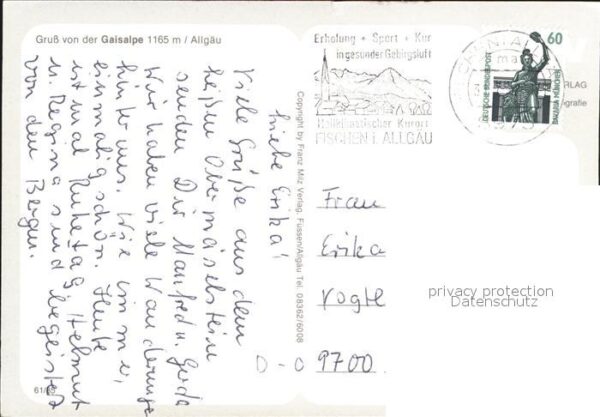 Gruß von der Gaisalpe 1165 m / Allgäu
Liebe Erika!
Viele Grüße aus dem
heißen Obermaiselstein
senden Dir Manfred u. Gerda
Wir haben viele Wanderungen
hinter uns. Wie immer,
einmalig schön. Heute
ist mal Ruhetag. Helmut
u. Regina sind begeistert
von den Bergen.
61/
Copyright by Franz Milz Verlag, Füssen/Allgäu Tel. 08362/6008
Erholung + Sport + Kur
in gesunder Gebirgsluft
Heilklimatischer Kurort
FISCHEN I. ALLGÄU
60
DEUTSCHE BUNDESPOST
BAVARIA MÜNCHEN
RLAG
grafie
Frau
Erika
Vogte
D-O 9700
privacy protection
Datenschutz